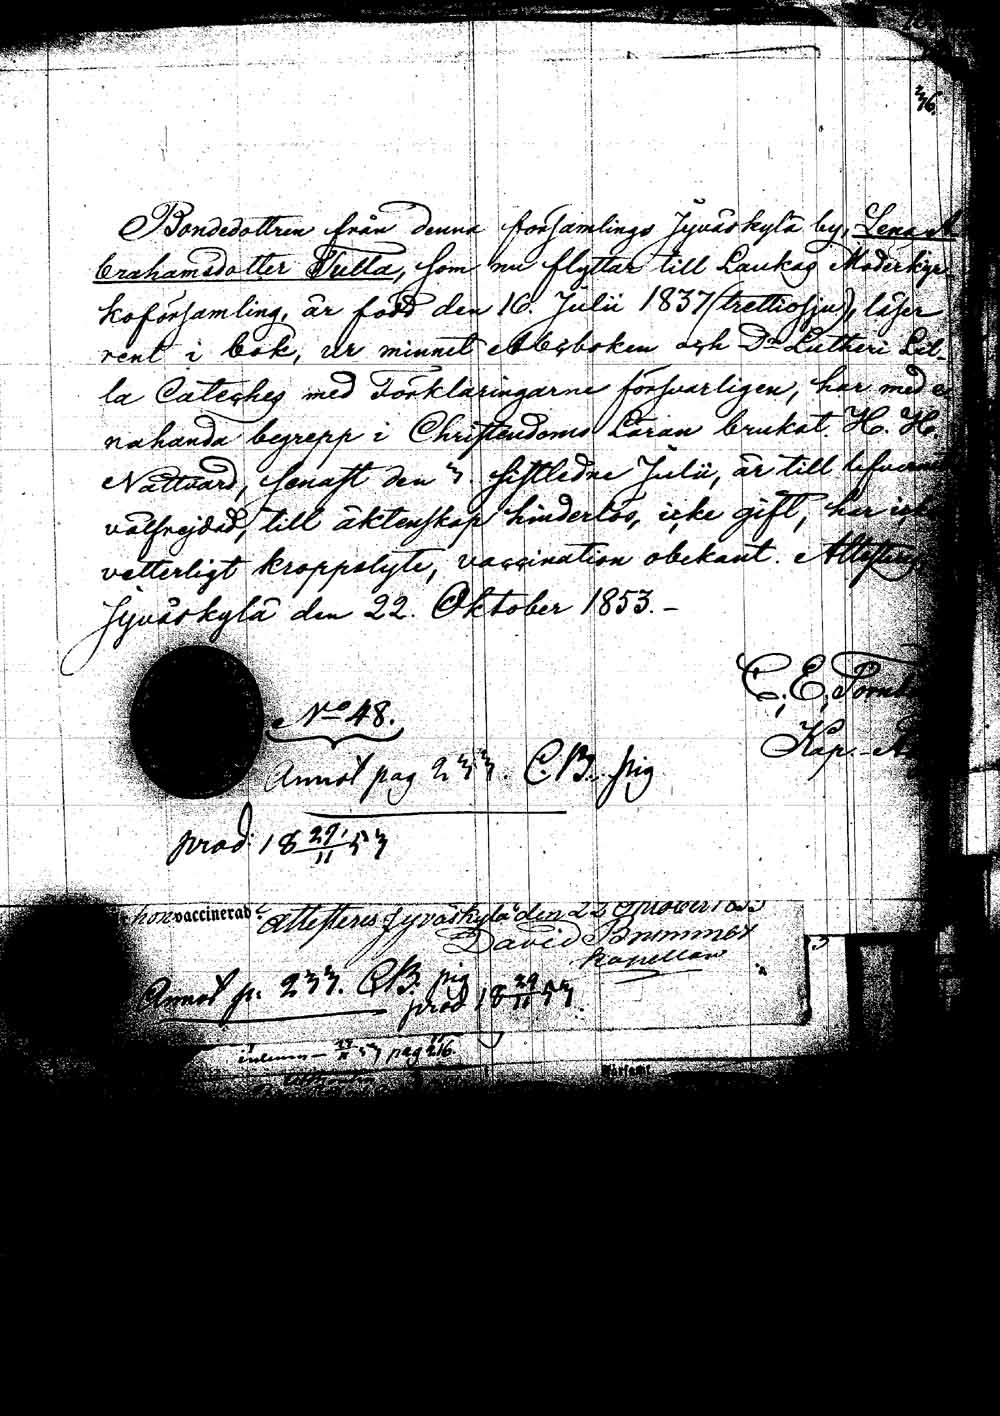 376.
Bondedottren från denna församlings Jyväskylä by, Lena A
brahamsdotter Tulla, som nu flyttar till Laukas Moderkyr-
koförsamling, är född den 16. Julii 1837 (trettiosju), läser
rent i bok, ur minnet Abcboken och Dr Lutheri Lil-
la Cateches med Förklaringarne försvarligen, har med e
nahanda begrepp i Christendoms Läran brukat H. H.
Nattvard, senast den 3. sistledne Julii, är till lefverne
välfrejdad, till äktenskap hinderlös, icke gift, har icke
vetterligt kroppslyte, vaccination obekant. Attesteras
Jyväskylä den 22. Oktober 1853. –
C. E.
Kap.
No 48.
Annot pag 233. C.B. pig
prod. 18 29/11 53
hon vaccinerad.
Attesteras Jyväskylä den 22 October 1853
David Brummer
Kapellan
Annot p. 233. C.B. pig
prod 18 29/11 53.
53 pag 216.